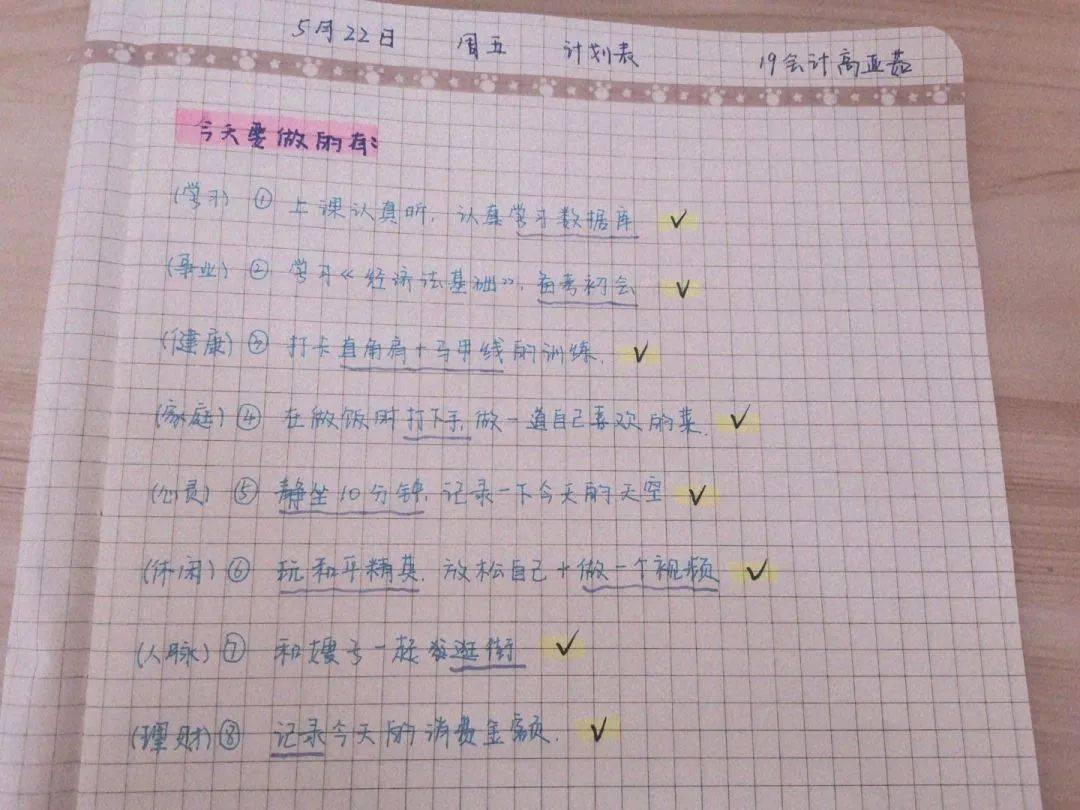 5月22日 周五 计划表 19会计高亚茹
今天要做的有:
(学习) ① 上课认真听, 认真学习数据库 ✓
(事业) ② 学习《经济法基础》, 备考初会 ✓
(健康) ③ 打卡直角肩+马甲线的训练. ✓
(家庭) ④ 在做饭时打下手, 做一道自己喜欢的菜. ✓
(心灵) ⑤ 静坐10分钟, 记录一下今天的天空 ✓
(休闲) ⑥ 玩和平精英, 放松自己+做一个视频 ✓
(人脉) ⑦ 和嫂子一起逛街 ✓
(理财) ⑧ 记录今天的消费金额. ✓